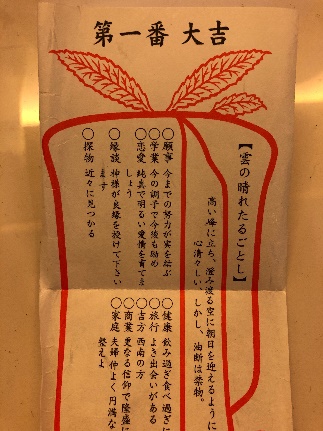 第一番 大吉
【雲の晴れたるごとし】
高い峰に立ち、澄み渡る空に朝日を迎えるように
心清々しい。しかし、油断は禁物。
〇願事 今までの努力が実を結ぶ
〇学業 今の調子で今後も励め
〇恋愛 純真で明るい愛情を育てま
しょう
〇縁談 神様が良縁を授けて下さい
ます
〇探物 近々に見つかる
〇健康 飲み過ぎ食べ過ぎに
〇旅行 よき出会いがある
〇吉方 西南の方
〇商業 更なる信仰で隆盛に
〇家庭 夫婦仲よく円満な
整えよ